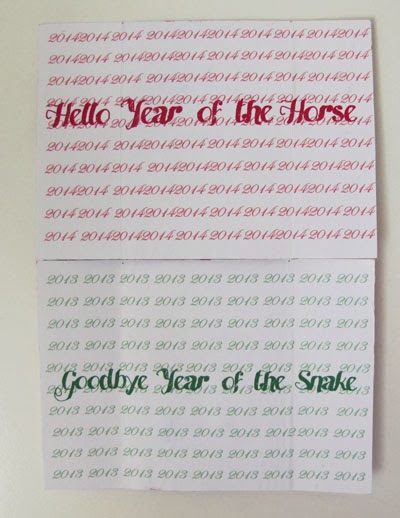 2014 2014 2014 2014 2014 2014 2014 2014 2014 2014
2014 2014 2014 2014 2014 2014 2014 2014 2014 2014
2014 2014 2014 2014 2014 2014 2014 2014 2014 2014
2014 2014 2014 2014 2014 2014 2014 2014 2014 2014
Hello Year of the Horse
2014 2014 2014 2014 2014 2014 2014 2014 2014 2014
2014 2014 2014 2014 2014 2014 2014 2014 2014 2014
2014 2014 2014 2014 2014 2014 2014 2014 2014 2014
2014 2014 2014 2014 2014 2014 2014 2014 2014 2014
2014 2014 2014 2014 2014 2014 2014 2014 2014 2014
2014 2014 2014 2014 2014 2014 2014 2014 2014 2014
2013 2013 2013 2013 2013 2013 2013 2013 2013
2013 2013 2013 2013 2013 2013 2013 2013 2013
2013 2013 2013 2013 2013 2013 2013 2013 2013
2013 2013 2013 2013 2013 2013 2013 2013 2013
2013 2013 2013 2013 2013 2013 2013 2013 2013
Goodbye Year of the Snake
2013 2013 2013 2013 2013 2013 2013 2013 2013
2013 2013 2013 2013 2013 2013 2013 2013 2013
2013 2013 2013 2013 2013 2013 2013 2013 2013
2013 2013 2013 2013 2013 2013 2013 2013 2013
2013 2013 2013 2013 2013 2013 2013 2013 2013